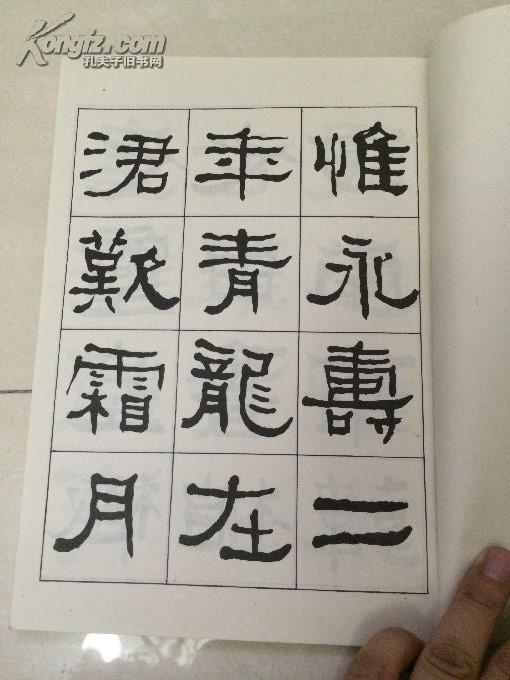 Kongfz.com
孔夫子旧书网
惟永壽二
年青龍在
涒歎霜月